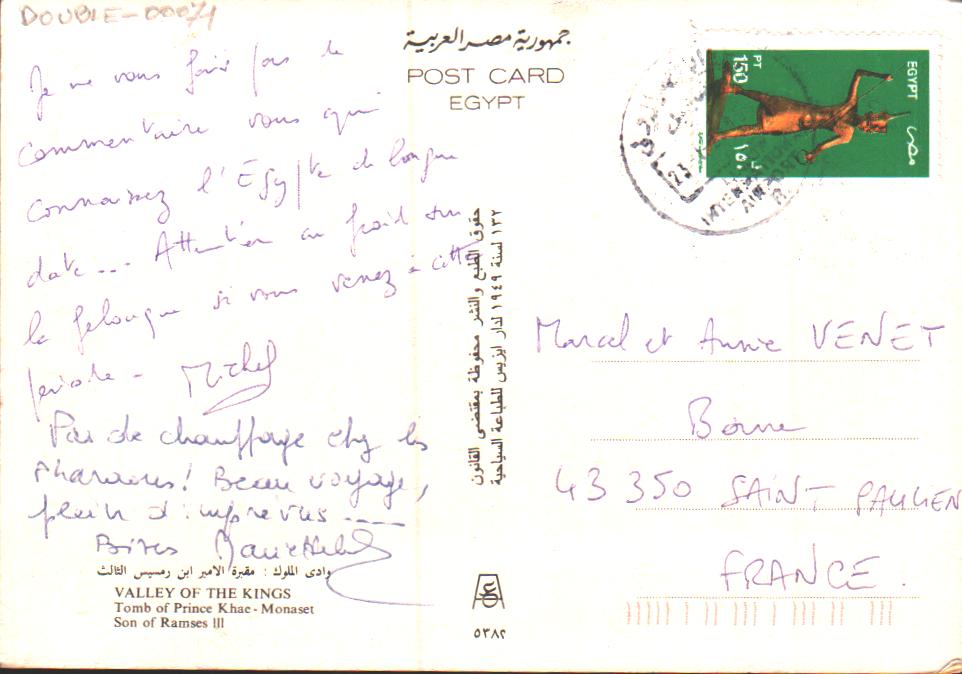 DOUBLE-00071
Je ne vous fais pas le
commentaire vous qui
connaissez l'Egypte de longue
date... Attention au froid sur
la felouque si vous venez à cette
période - Michel
Pas de chauffage chez les
pharaons! Beau voyage,
plein d'imprévus ----
Bises
وادى الملوك : مقبرة الامير ابن رمسيس الثالث
VALLEY OF THE KINGS
Tomb of Prince Khae - Monaset
Son of Ramses III
جمهورية مصر العربية
POST CARD
EGYPT
حقوق الطبع والنشر محفوظة بمقتضى القانون
١٣٢ لسنة ١٩٤٩ لدار ايزيس للطباعة السياحية
٥٣٨٢
EGYPT
مصر
150 PT
١٥٠
23
AIRPORT
Marcel et Annie VENET
Borne
43 350 SAINT PAULIEN
FRANCE.